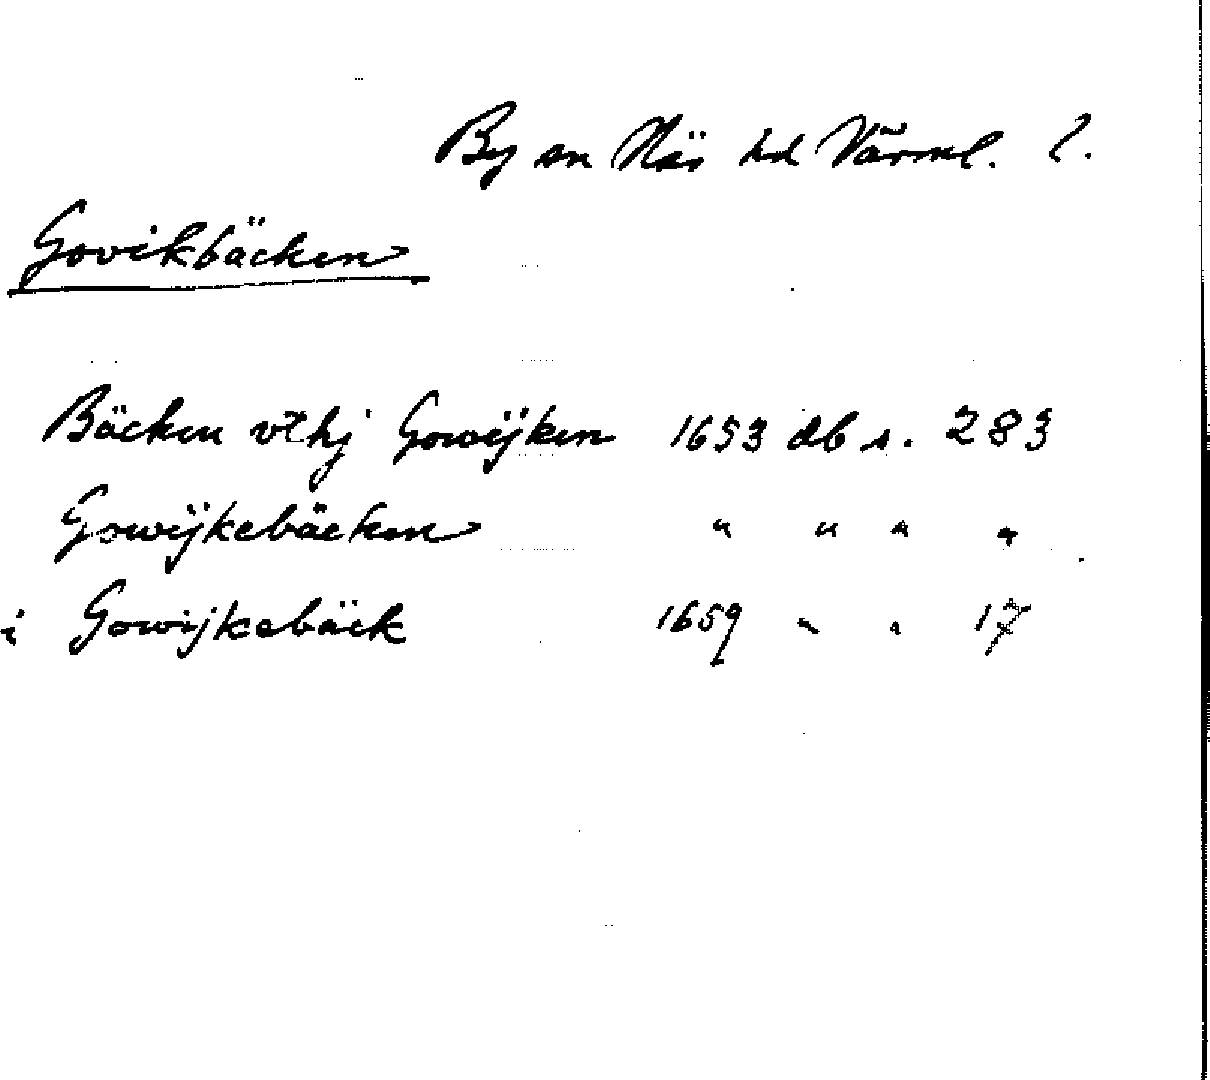 By sn Näs hd Värml. l.
Govikbäcken
Bäcken vthj Gowijken 1653 db s. 283
Gowÿkebäcken " " " "
i Gowijkebäck 1659 " " 17